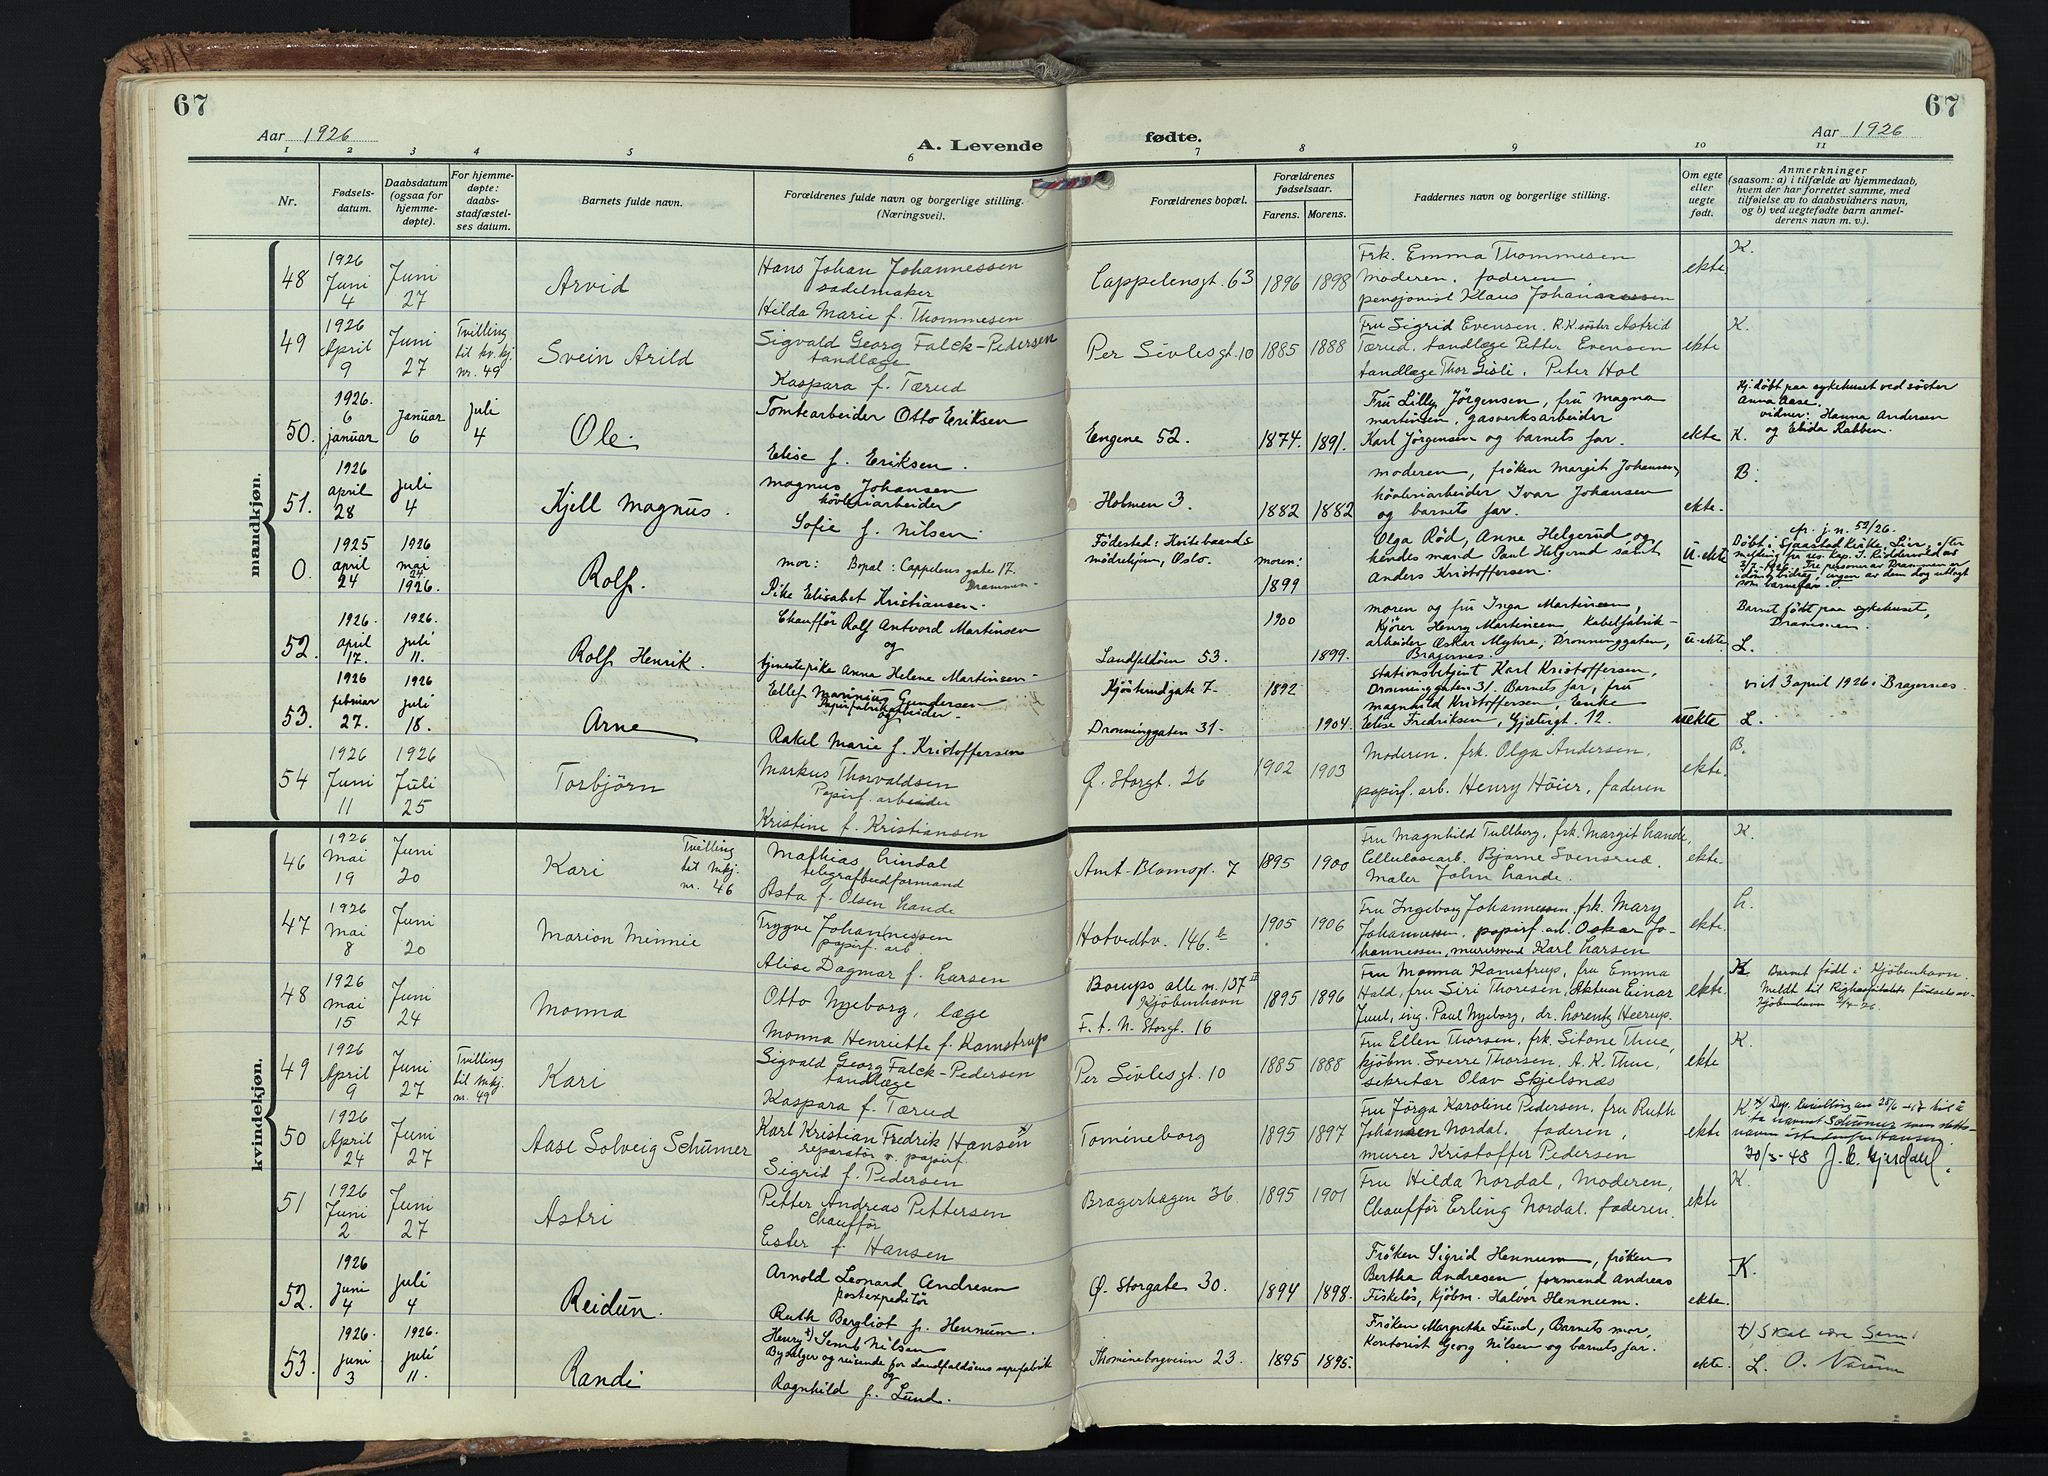 67
67
Aar 1926
A. Levende
fødte.
Aar 1926
1 2 3 4 5 6 7 8 9 10 11
Nr.
Fødsels-
datum.
Daabsdatum
(ogsaa for
hjemme-
døpte).
For hjemme-
døpte:
daabs-
stadfæstel-
ses datum.
Barnets fulde navn.
Forældrenes fulde navn og borgerlige stilling.
(Næringsvei).
Forældrenes bopæl.
Forældrenes
fødselsaar.
Farens. Morens.
Faddernes navn og borgerlige stilling.
Om egte
eller
uegte
født.
Anmerkninger
(saasom: a) i tilfælde av hjemmedaab,
hvem der har forrettet samme, med
tilføielse av to daabsvidners navn,
og b) ved uegtefødte barn anmel-
derens navn m. v.).
mandkjøn.
48
1926
Juni
4
Juni
27
Arvid
Hans Johan Johannessen
sadelmaker
Hilda Marie f. Thommesen
Cappelensgt. 63
1896
1898
Frk. Emma Thommesen
Moderen, faderen
pensjonist Klaus Johannessen
ekte
K.
49
1926
April
9
Juni
27
Tvilling
til kv.kj.
nr. 49
Svein Arild
Sigvald Georg Falck-Pedersen
tandlæge
Kaspara f. Tærud
Per Sivlesgt. 10
1885
1888
Fru Sigrid Evensen. R.K. søster Astrid
Tærud, tandlæge Petter Evensen
tandlæge Thor Gisle. Peter Hol
ekte
K.
50.
1926.
6
januar
Januar
6
juli
4
Ole
Tomtearbeider Otto Eriksen
Elise f. Eriksen.
Engene 52.
1874.
1891.
Fru Lilly Jörgensen, fru Magna
Martinsen, gasverksarbeider
Karl Jörgensen og barnets far.
ekte
Hj. döbt paa sykehuset ved söster
Anna Aase.
vidner: Hanna Andersen
og Elida Rabben.
K.
51.
1926
april
28
juli
4
Kjell Magnus.
Magnus Johansen
hövleriarbeider
Sofie f. Nilsen.
Holmen 3.
1882
1882
moderen, fröken Margit Johansen,
hövleriarbeider Ivar Johansen
og barnets far.
ekte.
B.
0.
1925
april
24
1926
mai
24
1926.
Rolf.
mor: Bopal: Cappelens gate 17.
Drammen.
Pike Elisabet Kristiansen.
Födested: Hvitebaands
mödrehjem, Oslo.
moren:
1899
Olga Röd, Anne Helgerud og
hendes mand Paul Helgerud samt
Anders Kristoffersen.
u.ekte
cfr. j.n. 52/26.
Döbt i Sjaastad Kirke Lier, efter
melding fra res. kap. J. Ridderwold av
3/7-1926. Tre personer av Drammen er
idömt bidrag, ingen av dem dog utlagt
som barnefar.
52.
1926.
april
17.
1926.
juli
11.
Rolf Henrik.
Chauffør Rolf Antvord Martinsen
og
tjenestepike Anna Helene Martinsen
Landfaldöen 53.
1900
1899.
moren og fru Inga Martinsen,
Kjörer Henry Martinsen Kabelfabrik-
arbeider Oskar Myhre, Dronninggaten,
Bragernes.
u.ekte
Barnet födt paa sykehuset,
Drammen.
L.
53.
1926
februar
27.
1926
juli
18.
Arne
Ellef Marinius Gundersen
Papirfabrikarbeider
og
Rakel Marie f. Kristoffersen
Kjöstrudgate 7.
Dronninggaten 31.
1892
1904.
stationsbetjent Karl Kristoffersen,
Dronninggaten 31. Barnets far, fru
Magnhild Kristoffersen, Enke
Elise Fredriksen, Gjætergt. 12.
uekte
viet 3 april 1926 i Bragernes.
L.
54
1926
Juni
11
1926
Juli
25
Torbjörn
Markus Thorvaldsen
Papirf. arbeider
Kristine f. Kristiansen
Ø. Storgt. 26
1902
1903
Moderen, frk. Olga Andersen,
papirf. arb. Henry Höier, faderen
ekte.
B.
kvindekjøn.
46
1926
Mai
19
Juni
20
Kari
Tvilling
til mkj.
nr. 46
Mathias Lindal
telegrafbudformand
Asta f. Olsen Lande
Amt. Blomsgt. 7
1895
1900
Fru Magnhild Tullberg, frk. Margit Lande,
Cellulosearb. Bjarne Svensrud
Maler John Lande.
ekte.
K.
47
1926
Mai
8
Juni
20
Marion Minnie
Trygve Johannessen
papirf. arb.
Alise Dagmar f. Larsen
Hotvedtv. 146.
1905
1906
Fru Ingeborg Johannessen, frk. Mary
Johannessen, papirf. arb. Oskar Jo-
hannessen, murersvend Karl Larsen
ekte.
L.
48
1926
Mai
15
Juni
24
Monna
Otto Nyeborg, læge
Monna Henriette f. Kamstrup
Borups alle n. 137 II
Kjöbenhavn
F. t. N. Storgt. 16
1895
1896
Fru Monna Kamstrup, fru Emma
Hald, fru Siri Thoresen, Aktuar Einar
Juul, ing. Paul Nyeborg, dr. Lorentz Heerup.
ekte.
K. Barnet födt i Kjöbenhavn.
Meldt til Righospitalets födselsav.
Kjöbenhavn
49
1926
April
9
Juni
27
Tvilling
til mkj.
nr. 49
Kari
Sigvald Georg Falck-Pedersen
tandlæge
Kaspara f. Tærud
Per Sivlesgt. 10
1885
1888
Fru Ellen Thorsen, frk. Sitone Thue,
kjöbm. Sverre Thorsen, A. K. Thue,
sekretær Olav Skjelsnæs
ekte
K.
50
1926
April
24
Juni
27
Aase Solveig Schümer
Karl Kristian Fredrik Hansen x)
reparatör v. papirf.
Sigrid f. Pedersen
Tomineborg
1895
1897
Fru Jörga Karoline Pedersen, fru Ruth
Johansen Nordal, faderen,
murer Kristoffer Pedersen
ekte
K x) Dep. bevilling av 28/6-47 til å
ta navnet Schümer som slekts-
navn istedenfor Hansen.
30/3-48
51
1926
Juni
2
Juni
27
Astri
Petter Andreas Pettersen
Chauffør
Ester f. Hansen
Bragerhagen 36
1895
1901
Fru Hilda Nordal, Moderen,
Chauffør Erling Nordal, faderen.
ekte
K.
52.
1926
Juni
4
juli
4
Reidun.
Arnold Leonard Andresen
postexpeditör
Ruth Bergliot f. Hennum.
Ø. Storgate 30.
1894
1898.
Fröken Sigrid Hennum, fröken
Bertha Andresen, formand Andreas
Fiskelös, kjöbm. Halvor Hennum.
ekte.
K.
53.
1926.
juni
3
1926.
juli
11.
Randi
Henry †) Semb Nilsen
Bysælger og reisende for Landfaldöens rapefabrik
og
Ragnhild f. Lund.
Thomineborgveien 23.
1895
1895.
Fröken Margrethe Lund, Barnets mor,
Kontorist Georg Nilsen og barnets far.
ekte.
†) Skal være Sem!
L.